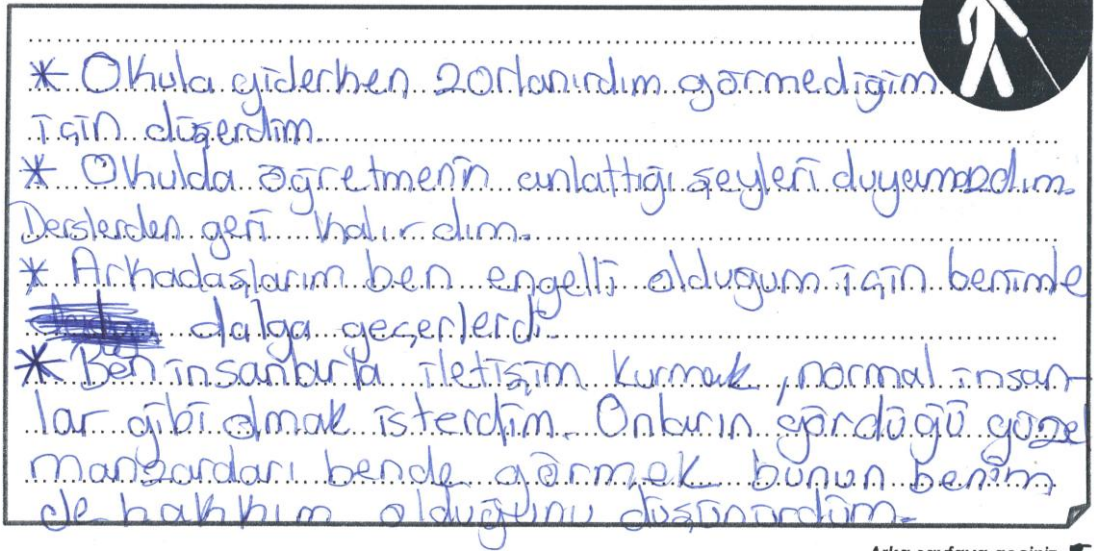 * Okula giderken zorlanırdım görmediğim
için düşerdim.
* Okulda öğretmenin anlattığı şeyleri duyamazdım.
Derslerden geri kalırdım.
* Arkadaşlarım ben engelli olduğum için benimle
dalga geçerlerdi.
* Ben insanlarla iletişim kurmak, normal insan-
lar gibi olmak isterdim. Onların gördüğü güzel
manzaraları bende görmek bunun benim
de hakkım olduğunu düşünürdüm.
Arka sayfaya geçiniz